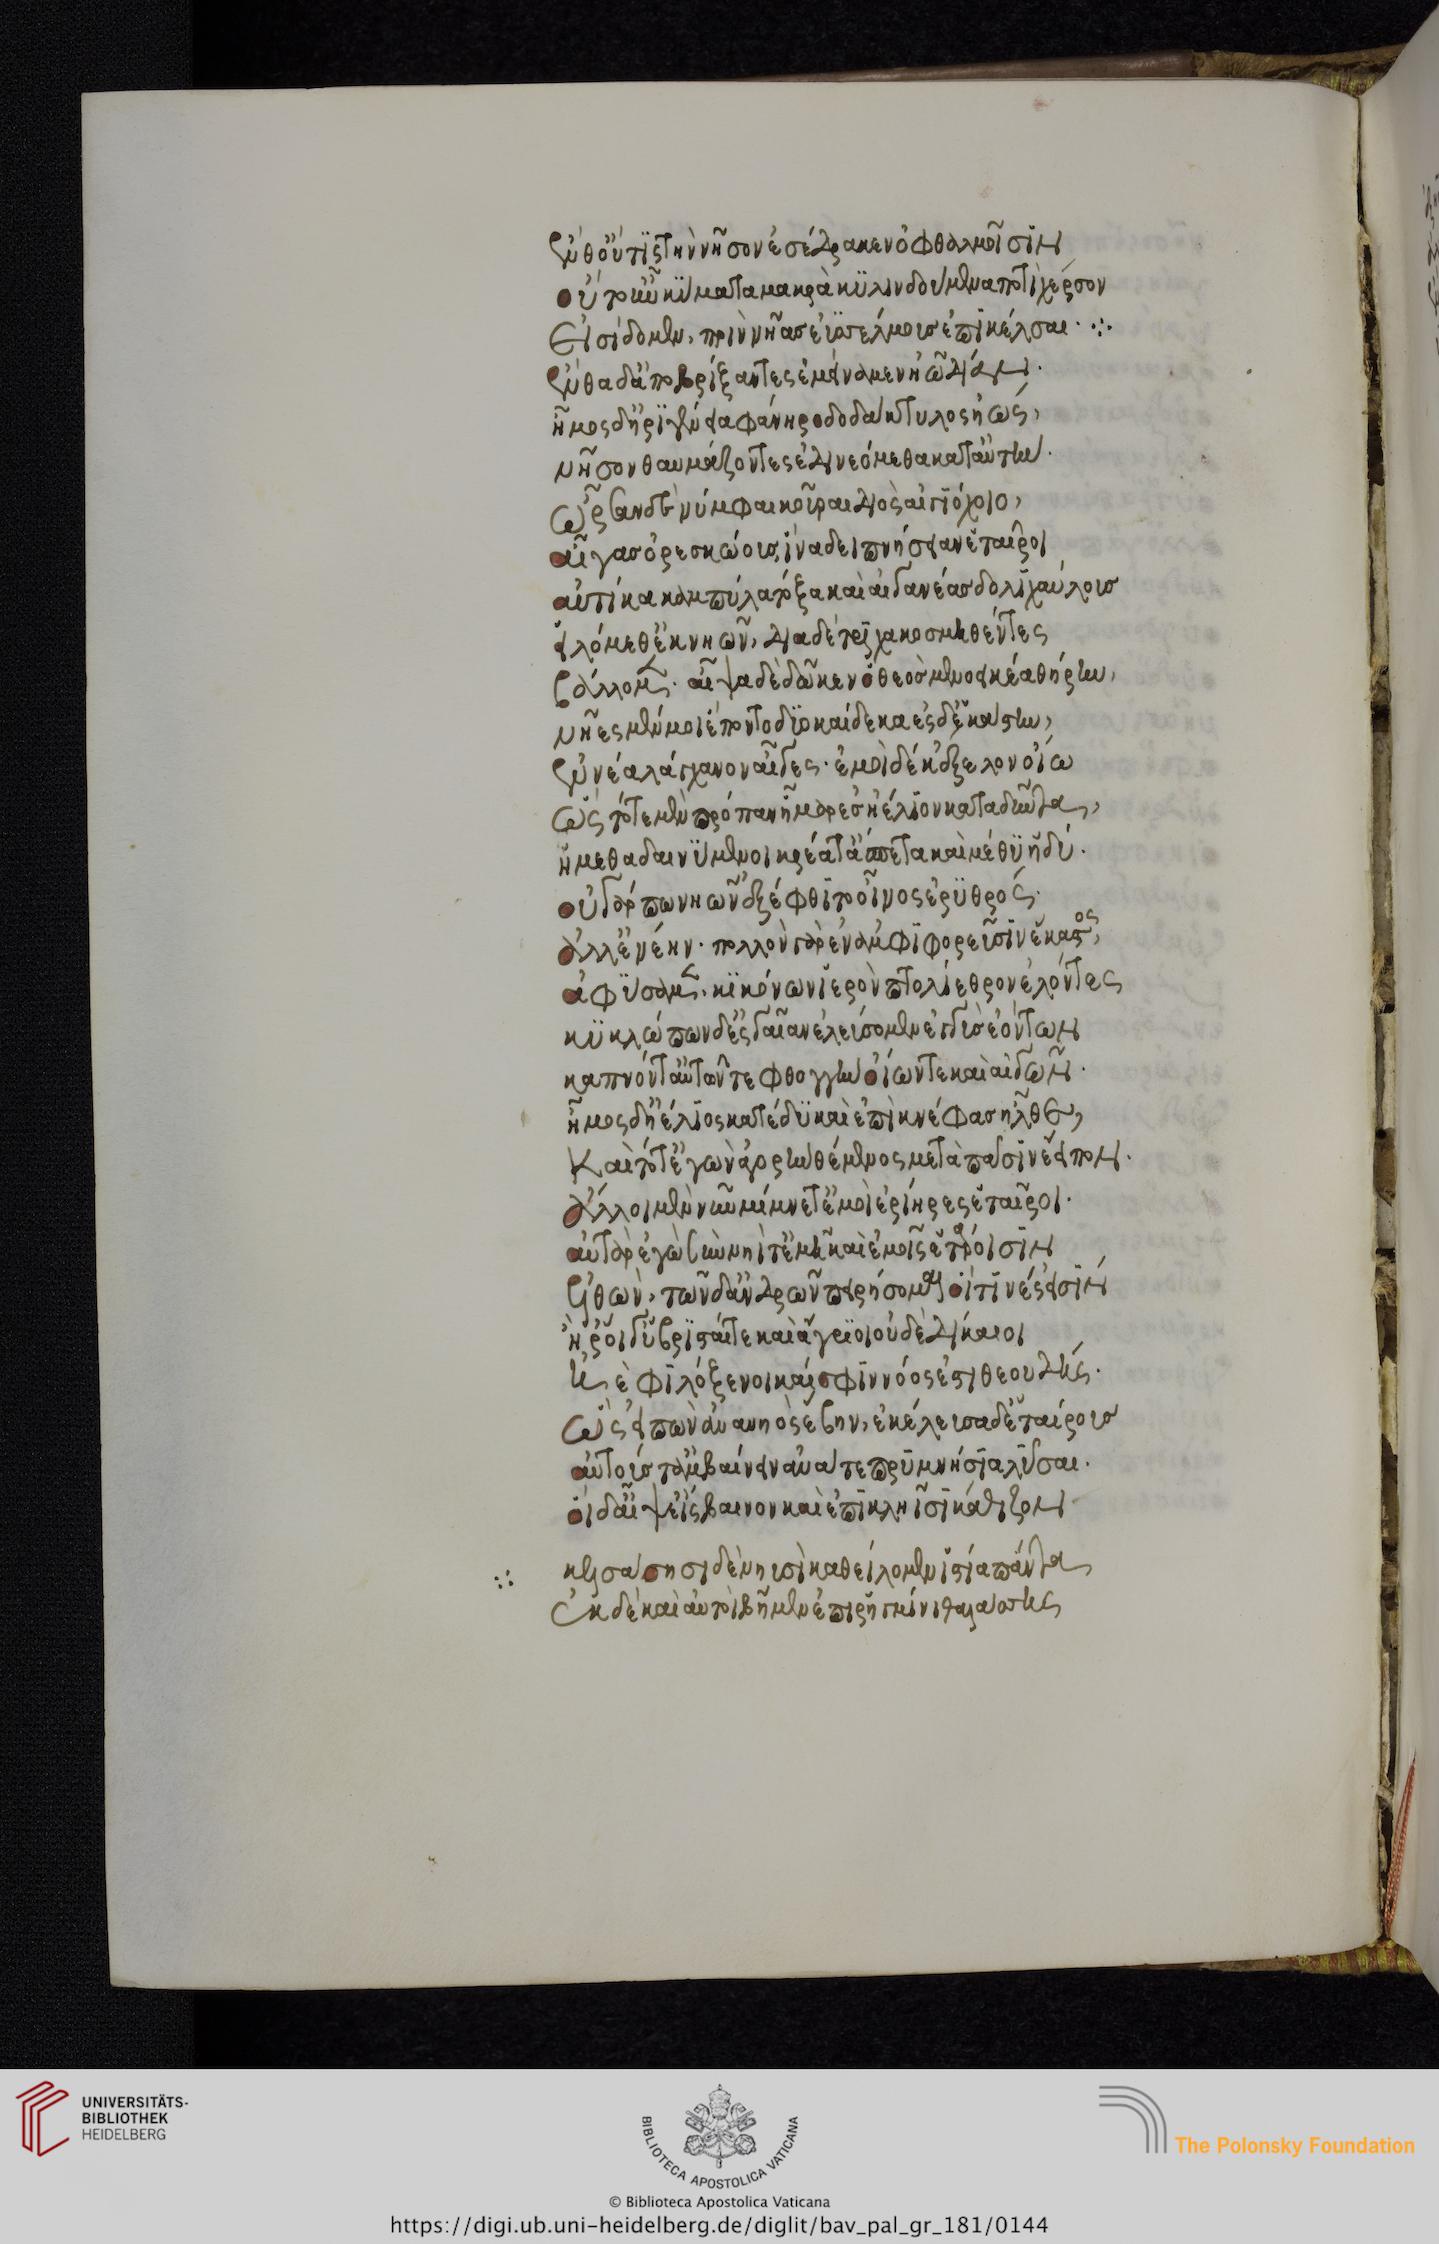 ἔνθ' οὔτις τὴν νῆσον ἐσέδρακεν ὀφθαλμοῖσιν
οὔτ' οὖν κύματα μακρὰ κυλινδόμενα ποτὶ χέρσον
εἰσίδομεν, πρὶν νῆας ἐϋσσέλμους ἐπικέλσαι· ∴
ἔνθα δ' ἀποβρίξαντες ἐμείναμεν ἠῶ δῖαν·
ἦμος δ' ἠριγένεια φάνη ῥοδοδάκτυλος ἠώς,
νῆσον θαυμάζοντες ἐδινεόμεθα κατ' αὐτήν·
ὦρσαν δὲ νύμφαι κοῦραι διὸς αἰγιόχοιο,
αἶγας ὀρεσκώους, ἵνα δειπνήσειαν ἑταῖροι
αὐτίκα καμπύλα τόξα καὶ αἰγανέας δολιχαύλους
εἱλόμεθ' ἐκ νηῶν, διὰ δὲ τρίχα κοσμηθέντες
βάλλομεν· αἶψα δὲ δῶκεν θεὸς μενοεικέα θήρην,
νῆες μέν μοι ἕποντο δυοκαίδεκα ἐς δὲ ἑκάστην,
ἐννέα λάγχανον αἶγες· ἐμοὶ δὲ δέκ' ἔξελον οἴω
ὣς τότε μὲν πρόπαν ἦμαρ ἐς ἠέλιον καταδύντα,
ἥμεθα δαινύμενοι κρέατ' ἄσπετα καὶ μέθυ ἡδύ·
οὐ γάρ πω νηῶν ἐξέφθιτο οἶνος ἐρυθρός·
ἀλλ' ἐνέην· πολλὸν γὰρ ἐν ἀμφιφορεῦσιν ἕκαστος,
ἀφύσαμεν, κικόνων ἱερὸν πτολίεθρον ἑλόντες
κυκλώπων δ' ἐς γαῖαν ἐλεύσσομεν ἐγγὺς ἐόντων
καπνόν τ' αὐτῶν τε φθογγὴν ὀΐων τε καὶ αἰγῶν·
ἦμος δ' ἠέλιος κατέδυ καὶ ἐπὶ κνέφας ἦλθε,
καὶ τότ' ἐγὼν ἀγορὴν θέμενος μετὰ πᾶσιν ἔειπον·
ἄλλοι μὲν νῦν μίμνετ' ἐμοὶ ἐρίηρες ἑταῖροι·
αὐτὰρ ἐγὼ σὺν νηΐ τ' ἐμῇ καὶ ἐμοῖς ἑτάροισιν
ἐλθὼν, τῶνδ' ἀνδρῶν πειρήσομαι οἵτινές εἰσιν
ἤ ῥ' οἵ γ' ὑβρισταί τε καὶ ἄγριοι οὐδὲ δίκαιοι
ἠὲ φιλόξενοι καί σφιν νόος ἐστὶ θεουδής·
ὣς εἰπὼν ἀνὰ νηὸς ἔβην, ἐκέλευσα δ' ἑταίρους
αὐτούς τ' ἀμβαίνειν ἀνά τε πρυμνήσια λῦσαι·
οἱ δ' αἶψ' εἴσβαινον καὶ ἐπὶ κληῗσι κάθιζον
∴ κελσάσῃσι δὲ νηυσὶ καθείλομεν ἱστία πάντα
ἐκ δὲ καὶ αὐτοὶ βῆμεν ἐπὶ ῥηγμῖνι θαλάσσης
UNIVERSITÄTS-
BIBLIOTHEK
HEIDELBERG
BIBLIOTECA APOSTOLICA VATICANA
The Polonsky Foundation
© Biblioteca Apostolica Vaticana
https://digi.ub.uni-heidelberg.de/diglit/bav_pal_gr_181/0144